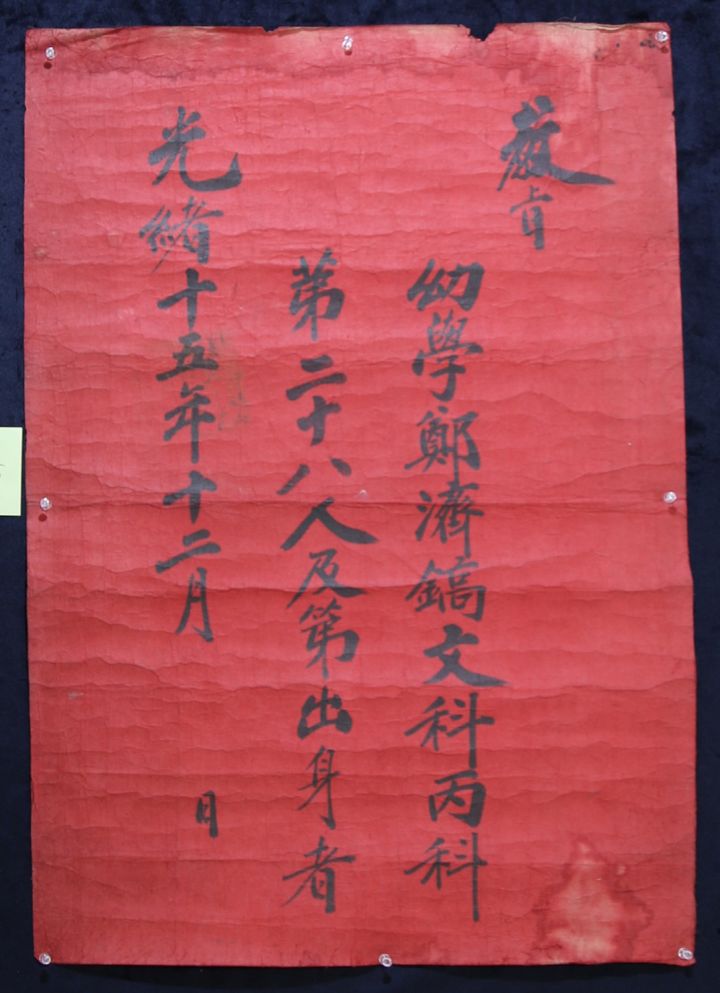 敎旨
幼學鄭濟鎬文科丙科
第二十八人及第出身者
光緖十五年十二月 日